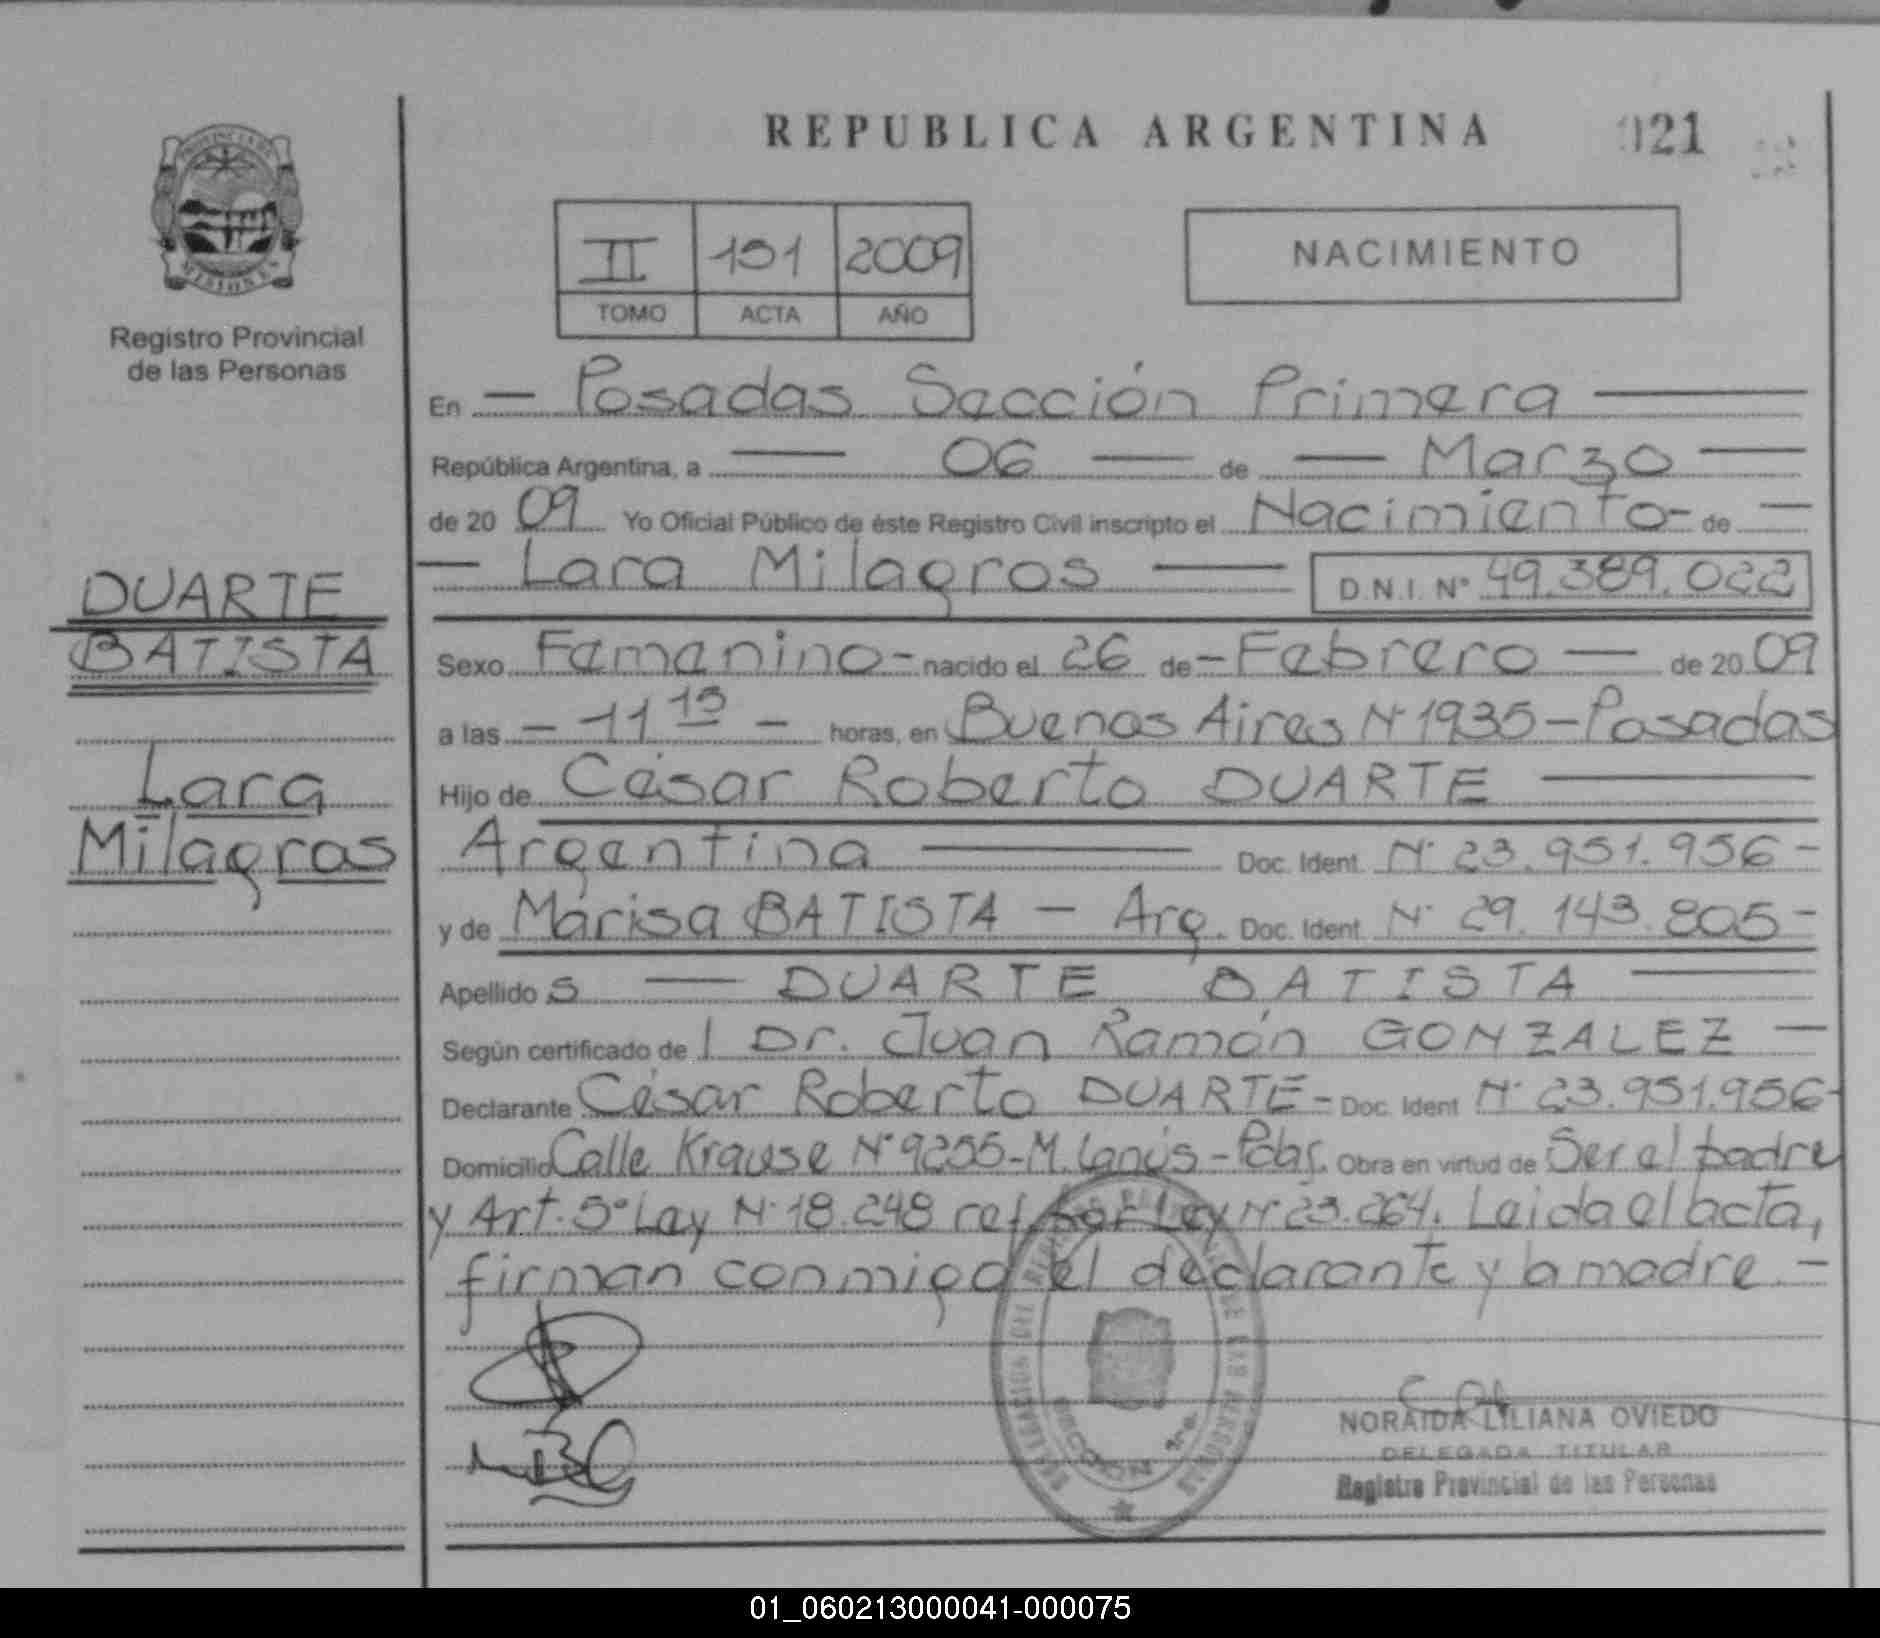 REPUBLICA ARGENTINA
021
PROVINCIA DE
MISIONES
Registro Provincial
de las Personas
II 151 2009
TOMO ACTA AÑO
NACIMIENTO
En — Posadas Sección Primera —
República Argentina, a — 06 — de — Marzo —
de 20 09 Yo Oficial Público de éste Registro Civil inscripto el Nacimiento - de —
— Lara Milagros — D.N.I. Nº 49.389.022
DUARTE
BATISTA
Lara
Milagros
Sexo Femenino - nacido el 26 de - Febrero — de 20 09
a las - 11 15 - horas, en Buenos Aires Nº 1935 - Posadas
Hijo de César Roberto DUARTE —
Argentina — Doc. Ident. Nº 23.951.956 -
y de Marisa BATISTA - Arg. Doc. Ident. Nº 29.143.805 -
Apellido s — DUARTE BATISTA —
Según certificado de l Dr. Juan Ramón GONZALEZ —
Declarante César Roberto DUARTE - Doc. Ident Nº 23.951.956 -
Domicilio Calle Krause Nº 9255 - M. Lanús - Pdas. Obra en virtud de Ser el padre
y Art. 5º Ley Nº 18.248 ref. por Ley Nº 23.264. Leida el acta,
firman conmigo el declarante y la madre. -
DELEGACION DEL REGISTRO DE LAS PERSONAS
SECCION 1ra.
NORAIDA LILIANA OVIEDO
DELEGADA TITULAR
Registro Provincial de las Personas
01_060213000041-000075